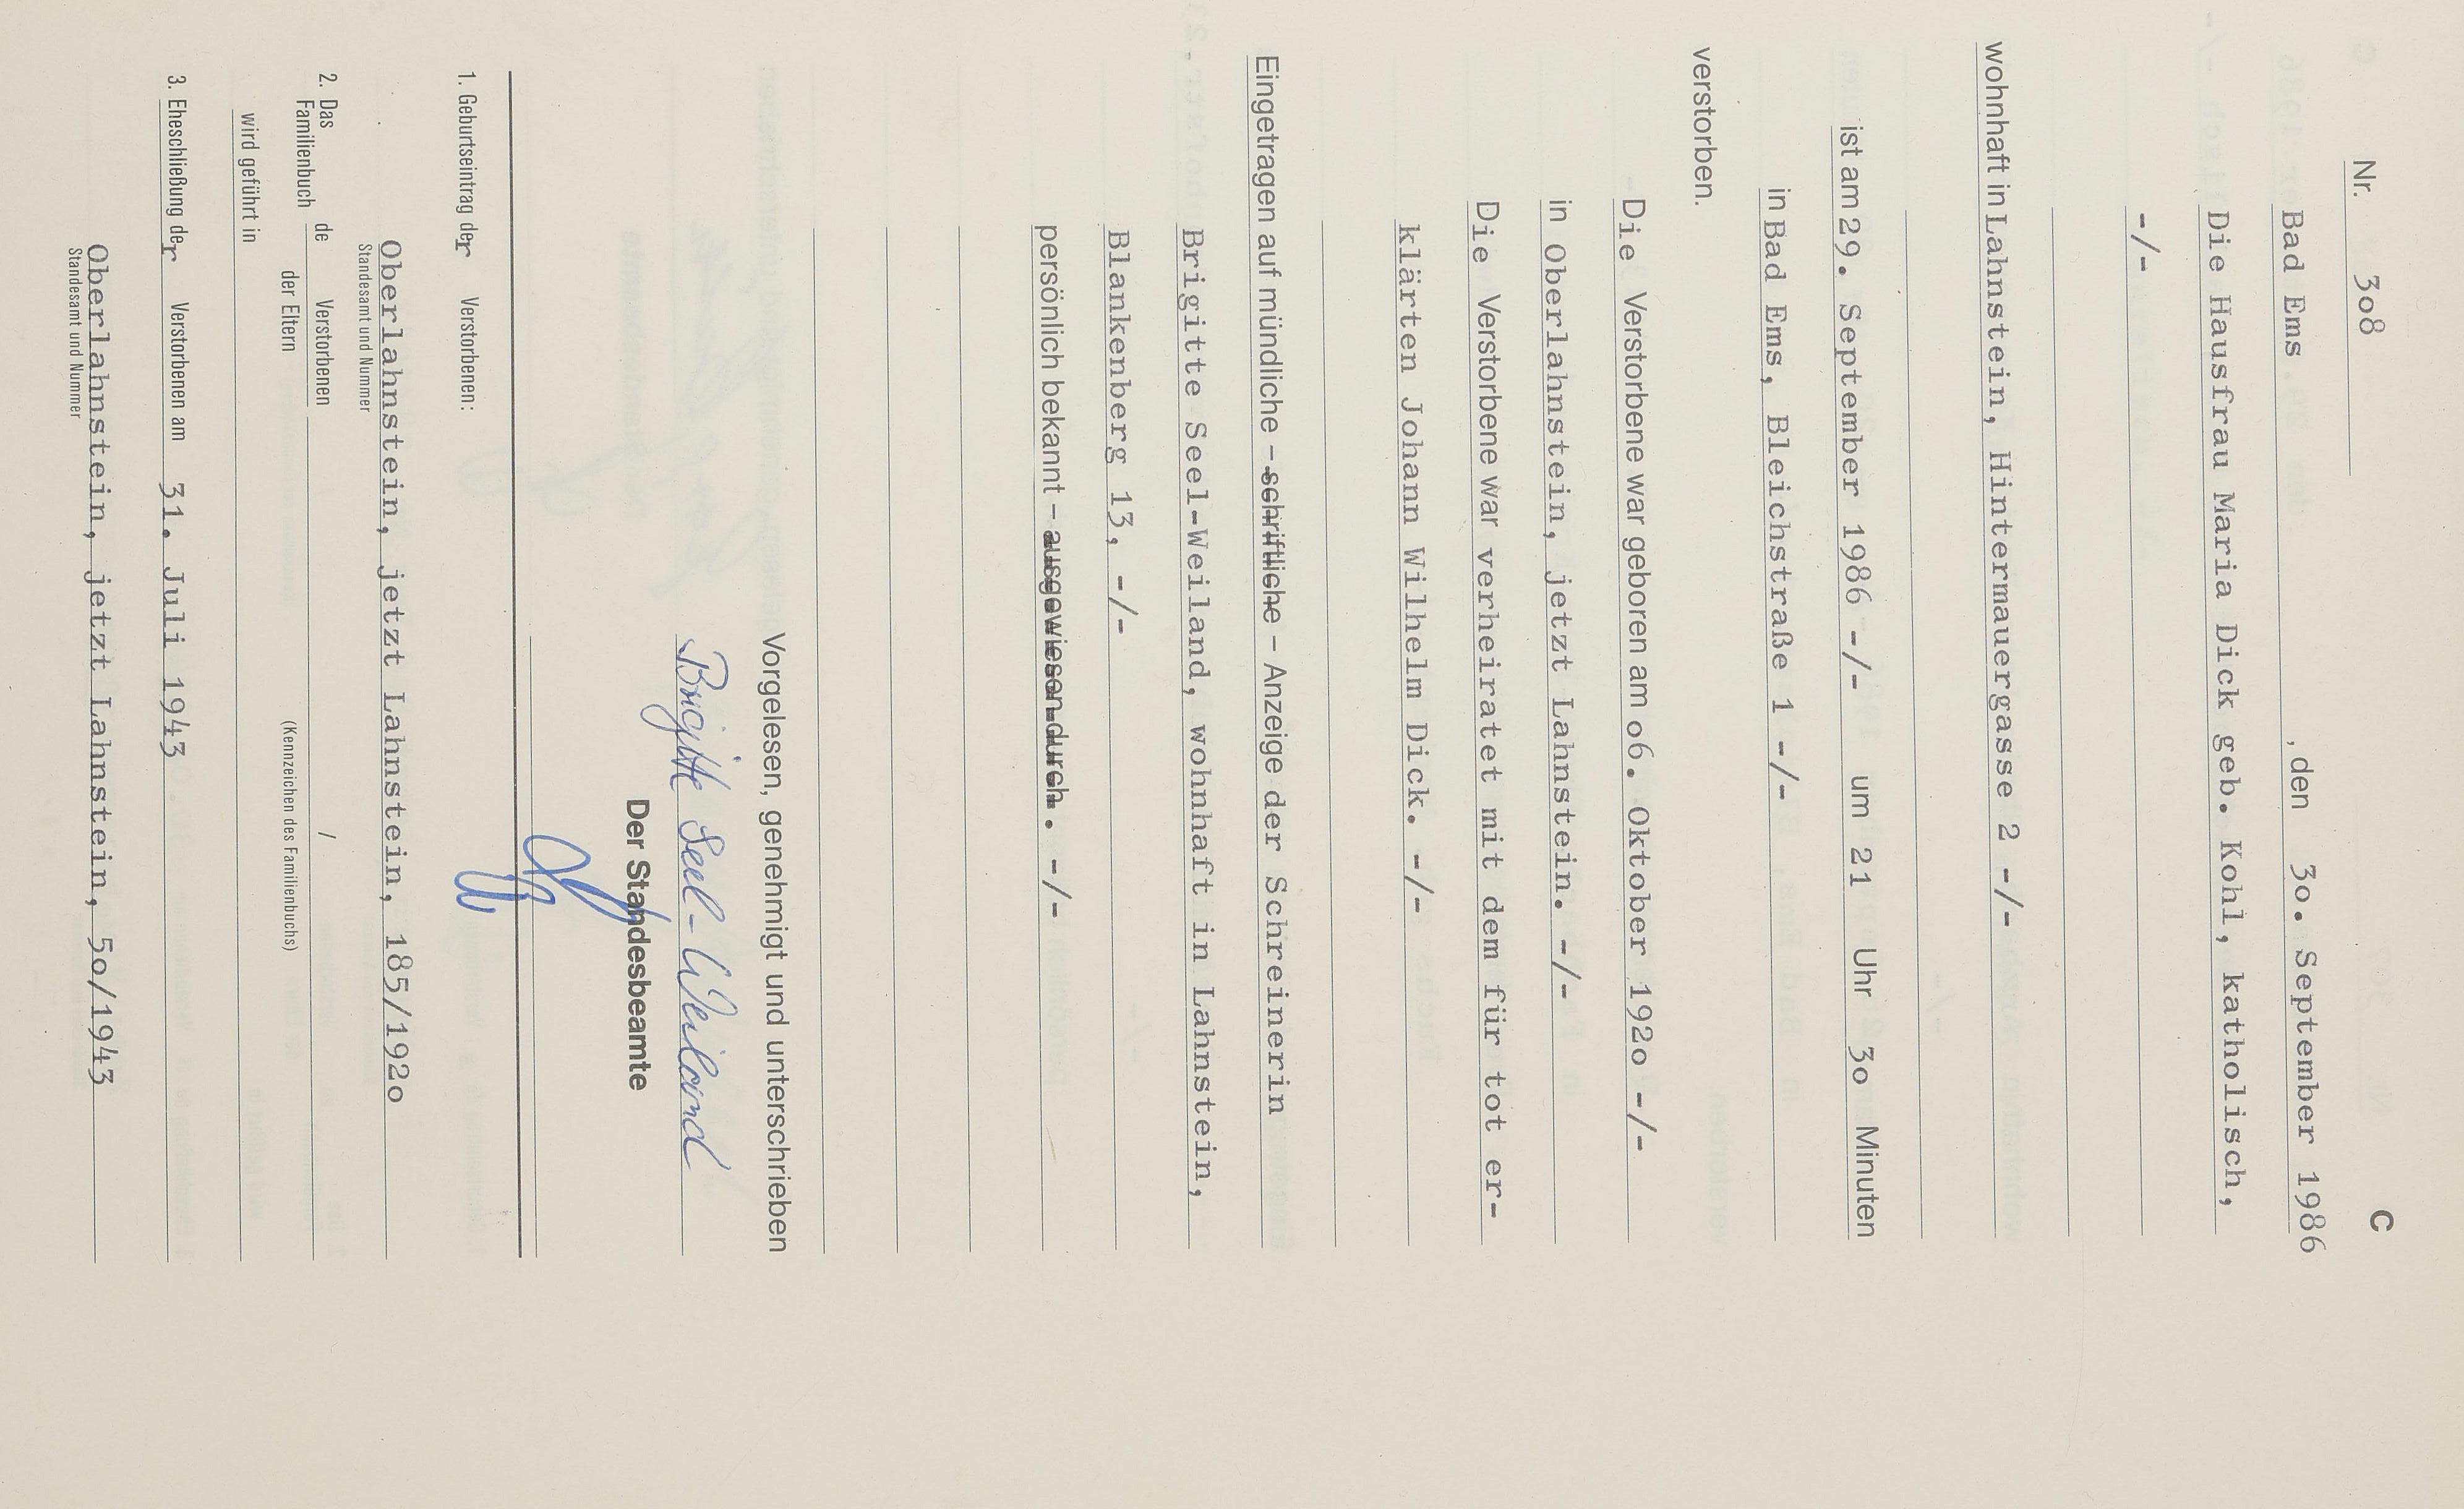 C
Nr. 3o8
Bad Ems , den 3o. September 1986
Die Hausfrau Maria Dick geb. Kohl, katholisch,
-/-
wohnhaft in Lahnstein, Hintermauergasse 2 -/-
ist am 29. September 1986 -/- um 21 Uhr 3o Minuten
in Bad Ems, Bleichstraße 1 -/-
verstorben.
Die Verstorbene war geboren am o6. Oktober 192o -/-
in Oberlahnstein, jetzt Lahnstein. -/-
Die Verstorbene war verheiratet mit dem für tot er-
klärten Johann Wilhelm Dick. -/-
Eingetragen auf mündliche – schriftliche – Anzeige der Schreinerin
Brigitte Seel-Weiland, wohnhaft in Lahnstein,
Blankenberg 13, -/-
persönlich bekannt – ausgewiesen durch. . -/-
Vorgelesen, genehmigt und unterschrieben
Brigitte Seel-Weiland
Der Standesbeamte
1. Geburtseintrag der Verstorbenen:
Oberlahnstein, jetzt Lahnstein, 185/192o
Standesamt und Nummer
2. Das Familienbuch de Verstorbenen /
der Eltern (Kennzeichen des Familienbuchs)
wird geführt in
3. Eheschließung der Verstorbenen am 31. Juli 1943
Oberlahnstein, jetzt Lahnstein, 5o/1943
Standesamt und Nummer